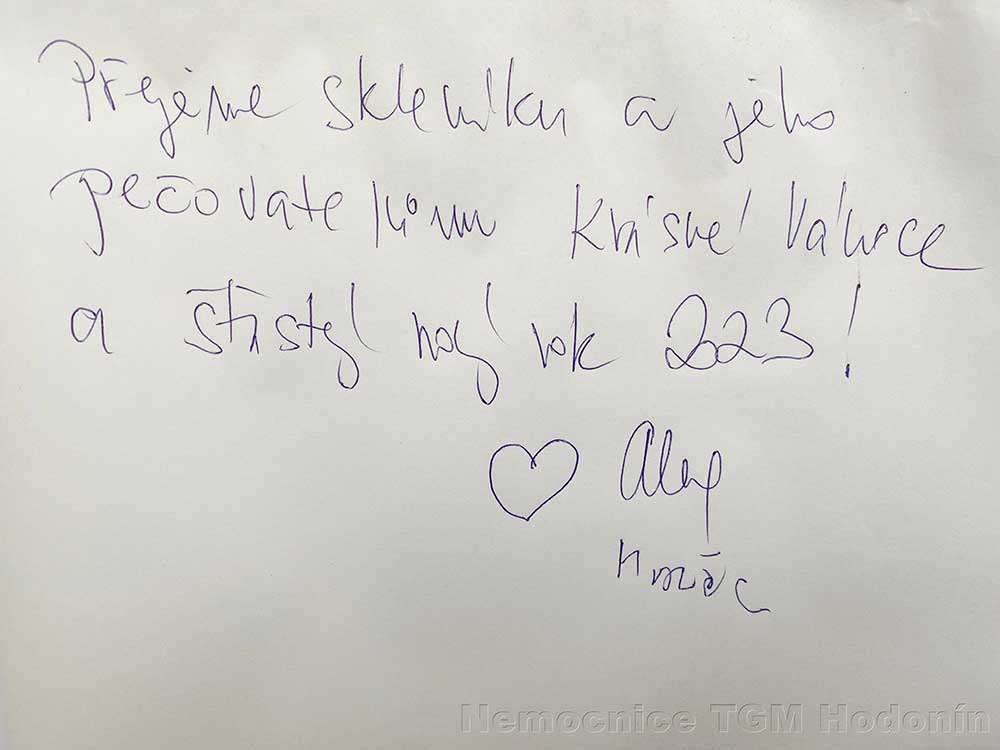 Přejeme skleníku a jeho
pečovatelům krásné Vánoce
a šťastný nový rok 2023!
Nemocnice TGM Hodonín